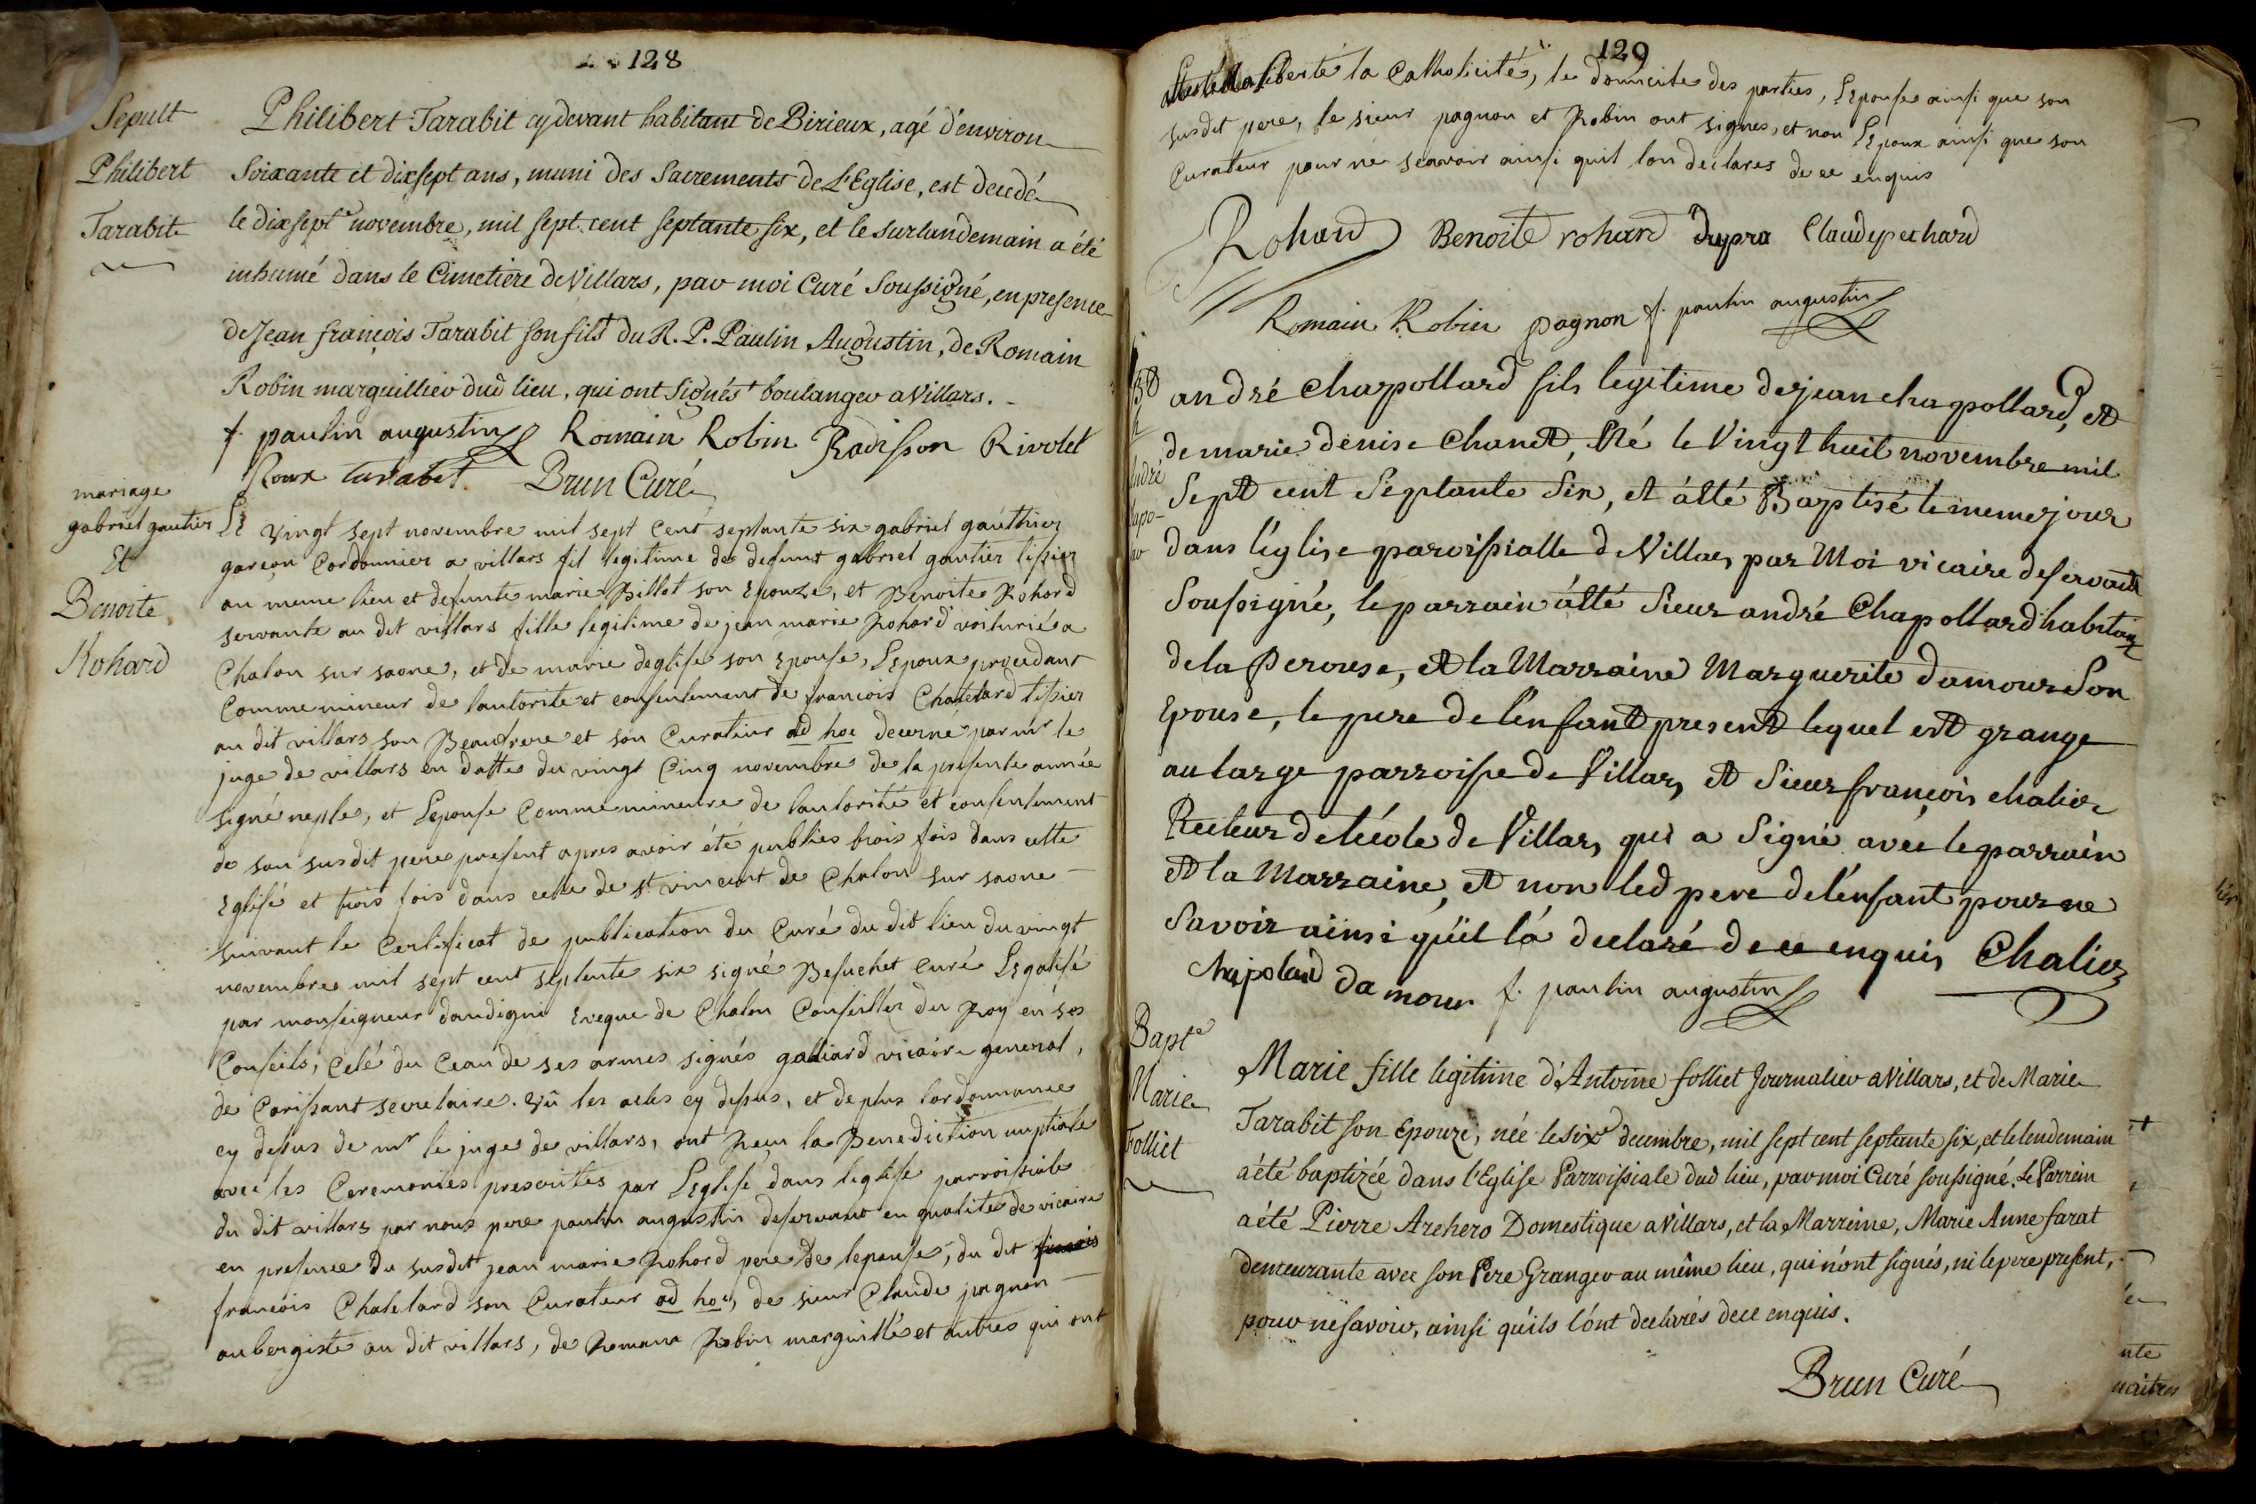 128
Sepult
Philibert
Tarabit
Philibert Tarabit cy devant habitant de Birieux, agé d'environ
Soixante et dixsept ans, muni des Sacrements de L'Eglise, est decedé
le dixsept novembre, mil sept cent septante six, et le surlandemain a été
inhumé dans le Cimetiere de Villars, par moi Curé Soussigné, en presence
de Jean françois Tarabit son fils du R. P. Paulin Augustin, de Romain
Robin marguillier dud lieu, qui ont signés boulanger a Villars.
f. paulin augustin Romain Robin Radisson Rivolet
Roux tarabit Brun Curé
mariage
gabriel gautier
Et
Benoite
Rohard
Le vingt sept novembre mil sept cent septante six gabriel gauthier
garcon Cordonnier a villars fil legitime de defunt gabriel gautier tissier
au meme lieu et defunte marie Billot son Epouze, et Benoite Rohard
servante au dit villars fille legitime de jean marie Rohard voiturié a
Chalon sur saone, et de marie deglise son Epouse, L'Epoux procedant
Comme mineur de lautorité et consentement de francois Chatelard tissier
au dit villars son Beaufrere et son Curateur ad hoc decerne par mr le
juge de villars en datte du vingt Cinq novembre de la presente année
signé neple, et L'Epouse Comme mineure de lautorité et consentement
de son susdit pere present apres avoir été publiés trois fois dans cette
Eglise et trois fois dans celle de st vincent de Chalon sur saone
suivant le Certificat de publication du Curé du dit lieu du vingt
novembre mil sept cent septente six signé Besuchet Curé Legalisé
par monseigneur dandigné Eveque de Chalon Conseiller du Roy en ses
Conseils, Celé du Ceau de ses armes signés galliard vicaire general,
de Corissant secretaire. Vû les actes cy dessus, et de plus lordonnance
cy dessus de mr le juge de villars, ont Reçu la Benediction nuptiale
avec les Ceremonies prescrites par L'Eglise dans leglise parroissiale
du dit villars par nous pere paulin augustin desservant en qualité de vicaire
en presence du susdit jean marie Rohard pere de lepouse, du dit
francois Chatelard son Curateur ad hoc, de sieur Claude pagnon
aubergiste au dit villars, de Romain Robin marguillié et autres qui ont
129
attesté la liberté la Catholicité, le domicile des parties, L'Epouse ainsi que son
susdit pere, le sieur pagnon et Robin ont signes, et non L'Epoux ainsi que son
Curateur pour ne scavoir ainsi quil lon declares de ce enquis
Rohard Benoite rohard dupra Claude pechard
Romain Robin pagnon f. paulin augustin
andré
andré chapollard fils legitime de jean chapollard, et
de marie denise Chanet, Né le Vingt huit novembre mil
Sept cent Septante Six, et a été Baptisé le meme jour
dans l'église paroissialle de Villars par Moi vicaire deservant
Soussigné, le parrain a été Sieur andré Chapollard habitant
de la Perouse, et la Marraine Marguerite damour Son
Epouse, le pere de l'enfant present lequel est grange
au large parroisse de Villars et Sieur françois chalier
Recteur de l'école de Villars qui a Signé avec le parrain
et la Marraine, et non led pere de l'enfant pour ne
Savoir ainsi qu'il l'a declaré de ce enquis Chalier
chapolard Damour f. paulin augustin
Bapt
Marie
Folliet
Marie fille legitime d'Antoine folliet Journalier a Villars, et de Marie
Tarabit son Epouze, née le six decembre, mil sept cent septante six, et le lendemain
a été baptizée dans l'Eglise Parroissiale dud lieu, par moi Curé soussigné. Le Parrein
a été Pierre Archero Domestique a Villars, et la Marreine, Marie Anne farat
demeurante avec son Pere Granger au même lieu, qui n'ont signés, ni le pere present,
pour ne savoir, ainsi qu'ils l'ont declarés de ce enquis.
Brun Curé